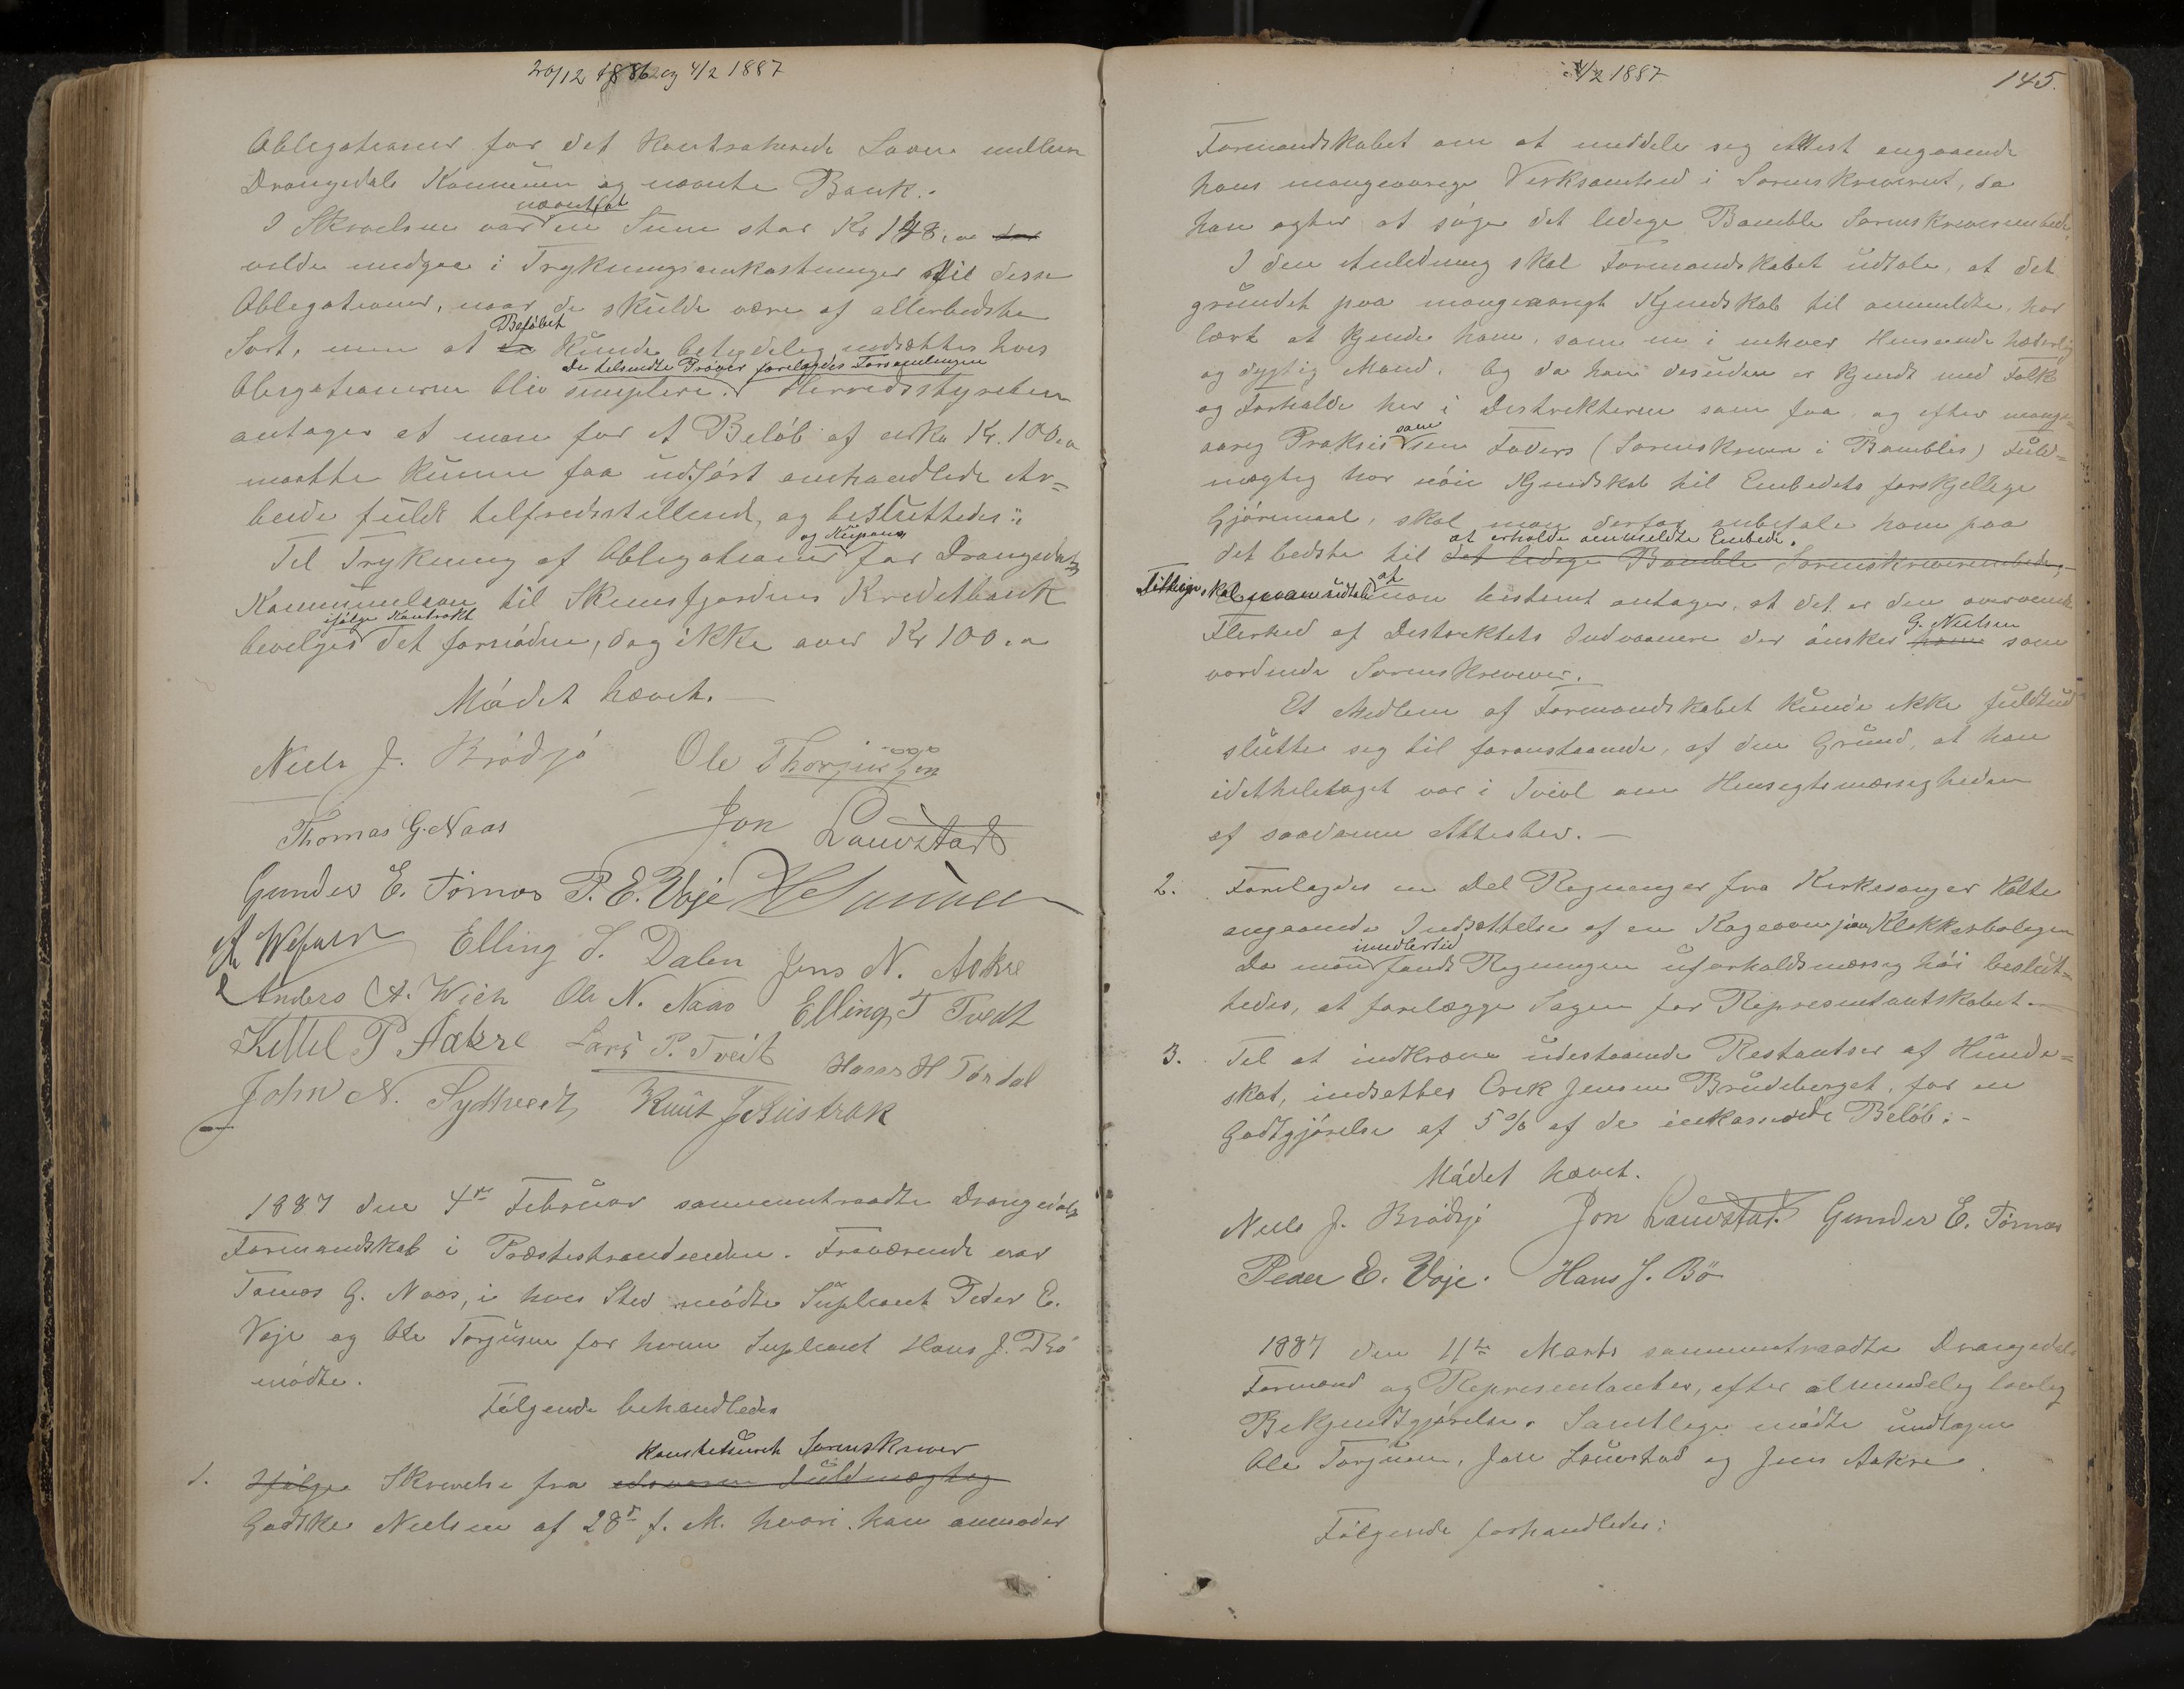 20/12 1886 og 4/2 1887
Obligationer for det kontraherede Laan mellem
Drangedals Kommune og nævnte Bank.
nævnt at
I Skrivelsen var en Sum stor Kr 148,00
vilde medgaa i Trykningsomkostninger til disse
Obligationer, naar de skulde være af allerbedste
Beløbet
Sort, men at de kunde betydelig nedsættes hvis
De tilsendte Prøver forelagdes Forsamlingen
Obligationerne blev simplere. Herredsstyrelsen
antager at man for et Beløb af cirka Kr. 100,00
maatte kunne faa udført omhandlede Ar=
beide fuldt tilfredsstillend, og besluttedes:
og Kupons
Til Trykning af Obligationer for Drangedals
Kommunelaan til Skiensfjordens Kreditbank
ifølge Kontrakt
bevilges det fornødne, dog ikke over Kr 100,00
Mødet hævet.
Niels J. Brødsjø Ole Thorjussen
Thomas G. Naas Jon Lauvstad
Gunder E. Törnes P. E. Voje
Elling S. Dalen Jens N. Aakre
Anders A. Wieh Ole N. Naas Elling T Tvedt
Kittel P. Aakre Lars P. Tveit Hans H Tørdal
John N. Sydtveit, Knut J. Austrak
1887 den 4de Februar sammentraadte Drangedals
Formandskab i Præstestranden. Fraværende var
Tomas G. Naas, i hvis Sted mødte Supleant Peder E.
Voje og Ole Torjusen for hvem Supleant Hans J. Bø
mødte.
Følgende behandledes
Konstitueret Sorenskriver
1. Ifølge Skrivelse fra edsvoren Fuldmægtig
Godtke Nielsen af 28de f. M. hvori han anmoder
4/2 1887
145.
Formandskabet om at meddele seg Attest angaaende
hans mangeaarige Virksomhed i Sorenskriveriet, da
han agter at søge det ledige Bamble Sorenskriverembede.
I den Anledning skal Formandskabet udtale, at det
grundet paa mangeaarigt Kjendskab til anmeldte, har
lært at kjende ham, som en i enhver Henseende hæderlig
og dygtig Mand. Og da han desuden er kjendt med Folk
og Forholde her i Distrikterne som faa, og efter mange=
som
aarig Praksis sin Faders (Sorenskriver i Bambles) Fuld=
mægtig har nøie Kjendskab til Embedets forskjellige
Gjøremaal, skal man derfor anbefale ham paa
at erholde anmeldte Embede.
det bedste til det ledige Bamble Sorenskriverembede,
at
Tillige skal man udtale man bestemt antager, at det er den overveiende
G. Nielsen
Flerhed af Distriktets Indvaanere der ønsker ham som
vordende Sorenskriver.
Et Medlem af Formandskabet kunde ikke fuldtud
slutte seg til foranstaaende, af den Grund, at han
idetheletaget var i Tvivl om Hensigtsmæssigheden
af saadanne Attester.
2. Forelagdes en Del Regninger fra Kirkesanger Holte
angaaende Indsættelse af en Kageovn paa Klokkerboligen
imidlertid
Da man fandt Regningen uforholdsmæssig høi beslut=
tedes, at forelægge Sagen for Representantskabet.
3. Til at indkræve udestaaende Restantser af Hunde=
skat, indsættes Erik Jensen Brudeberget, for en
Godtgjørelse af 5% af de inkasserede Beløb.
Mødet hævet.
Niels J. Brødsjø Jon Lauvstad. Gunder E. Törnes
Peder E. Voje. Hans J. Bö
1887 den 11te Marts sammentraadte Drangedals
Formænd og Representanter, efter almindelig lovlig
Bekjendtgjørelse. Samtlige mødte undtagen
Ole Torjusen, Jon Lauvstad og Jens Aakre.
Følgende forhandledes: